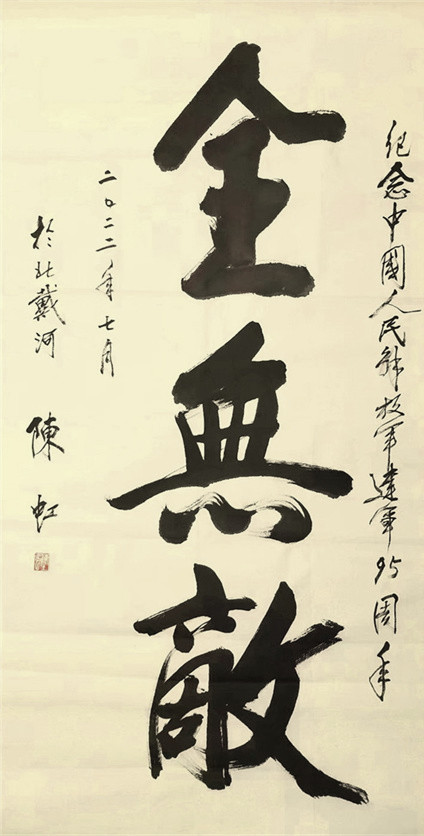 纪念中國人民解放军建军95周年
全無敵
二〇二二年七月
於北戴河
陳虹